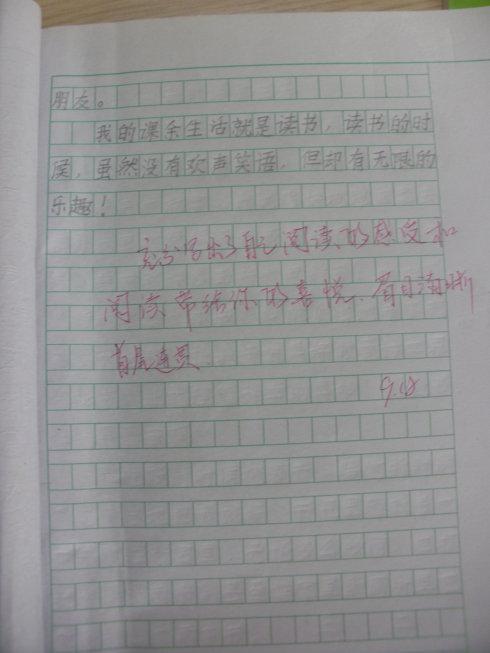 朋友。
我的课余生活就是读书，读书的时
候，虽然没有欢声笑语，但却有无限的
乐趣！
充分写出了自己阅读的感受和
阅读带给你的喜悦、眉目清晰
首尾连贯
9.18